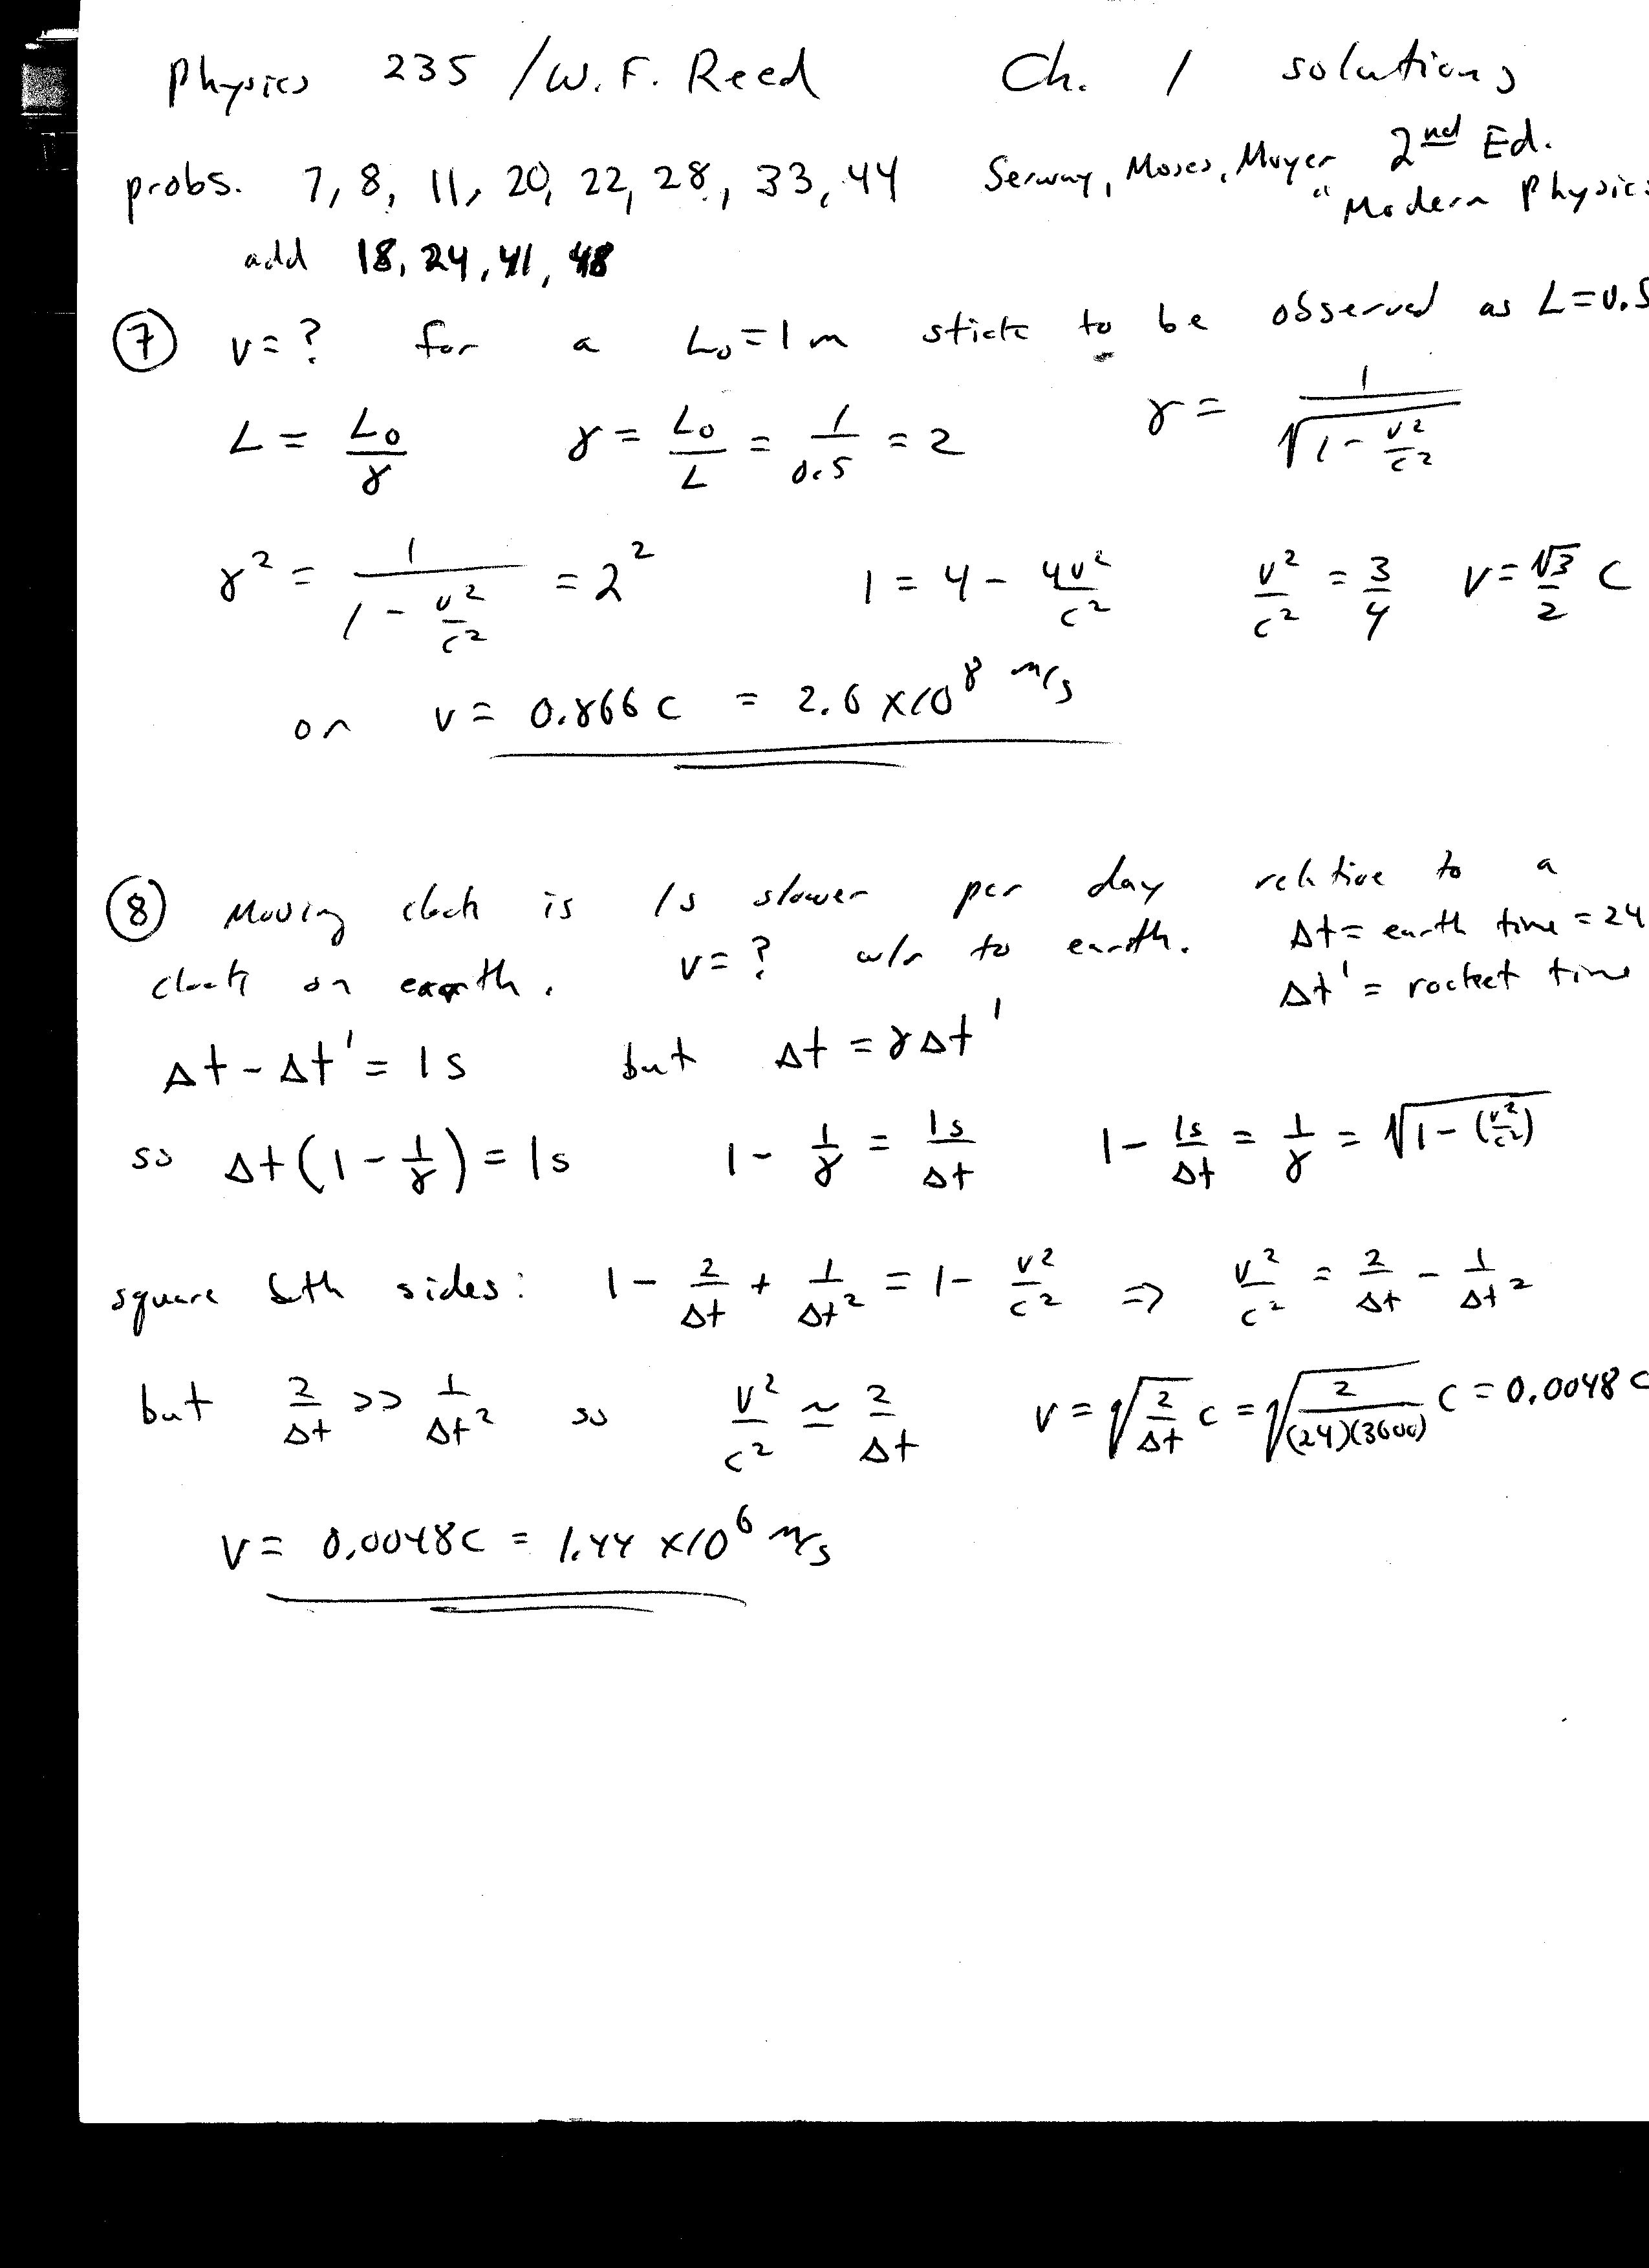 Physics 235 / W. F. Reed Ch. 1 solutions
probs. 7, 8, 11, 20, 22, 28, 33, 44 Serway, Moses, Moyer 2nd Ed.
"Modern Physics
add 18, 24, 41, 48
⑦ v = ? for a L₀ = 1 m stick to be observed as L = 0.5
L = L₀/γ γ = L₀/L = 1/0.5 = 2 γ = 1/√(1 - v²/c²)
γ² = 1/(1 - v²/c²) = 2² 1 = 4 - 4v²/c² v²/c² = 3/4 v = √3/2 c
or v = 0.866 c = 2.6 x10⁸ m/s
⑧ Moving clock is 1s slower per day relative to a
clock on earth. v = ? w/r to earth. Δt = earth time = 24
Δt' = rocket time
Δt - Δt' = 1 s but Δt = γΔt'
so Δt(1 - 1/γ) = 1s 1 - 1/γ = 1s/Δt 1 - 1s/Δt = 1/γ = √(1 - (v²/c²))
square both sides: 1 - 2/Δt + 1/Δt² = 1 - v²/c² ⇒ v²/c² = 2/Δt - 1/Δt²
but 2/Δt >> 1/Δt² so v²/c² ≃ 2/Δt v = √(2/Δt) c = √(2/(24)(3600)) c = 0.0048 c
v = 0.0048c = 1.44 x10⁶ m/s